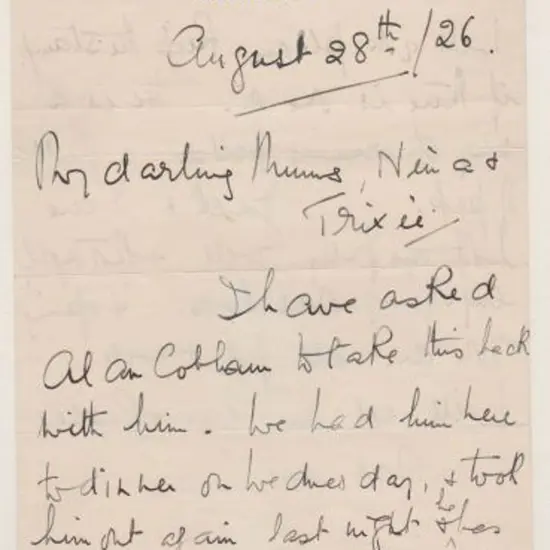 August 28th/26.
My darling Mums, Nina &
Trixie.
I have asked
Alan Cobham to take this back
with him. We had him here
to dinner on Wednesday, & took
him out again last night & he has